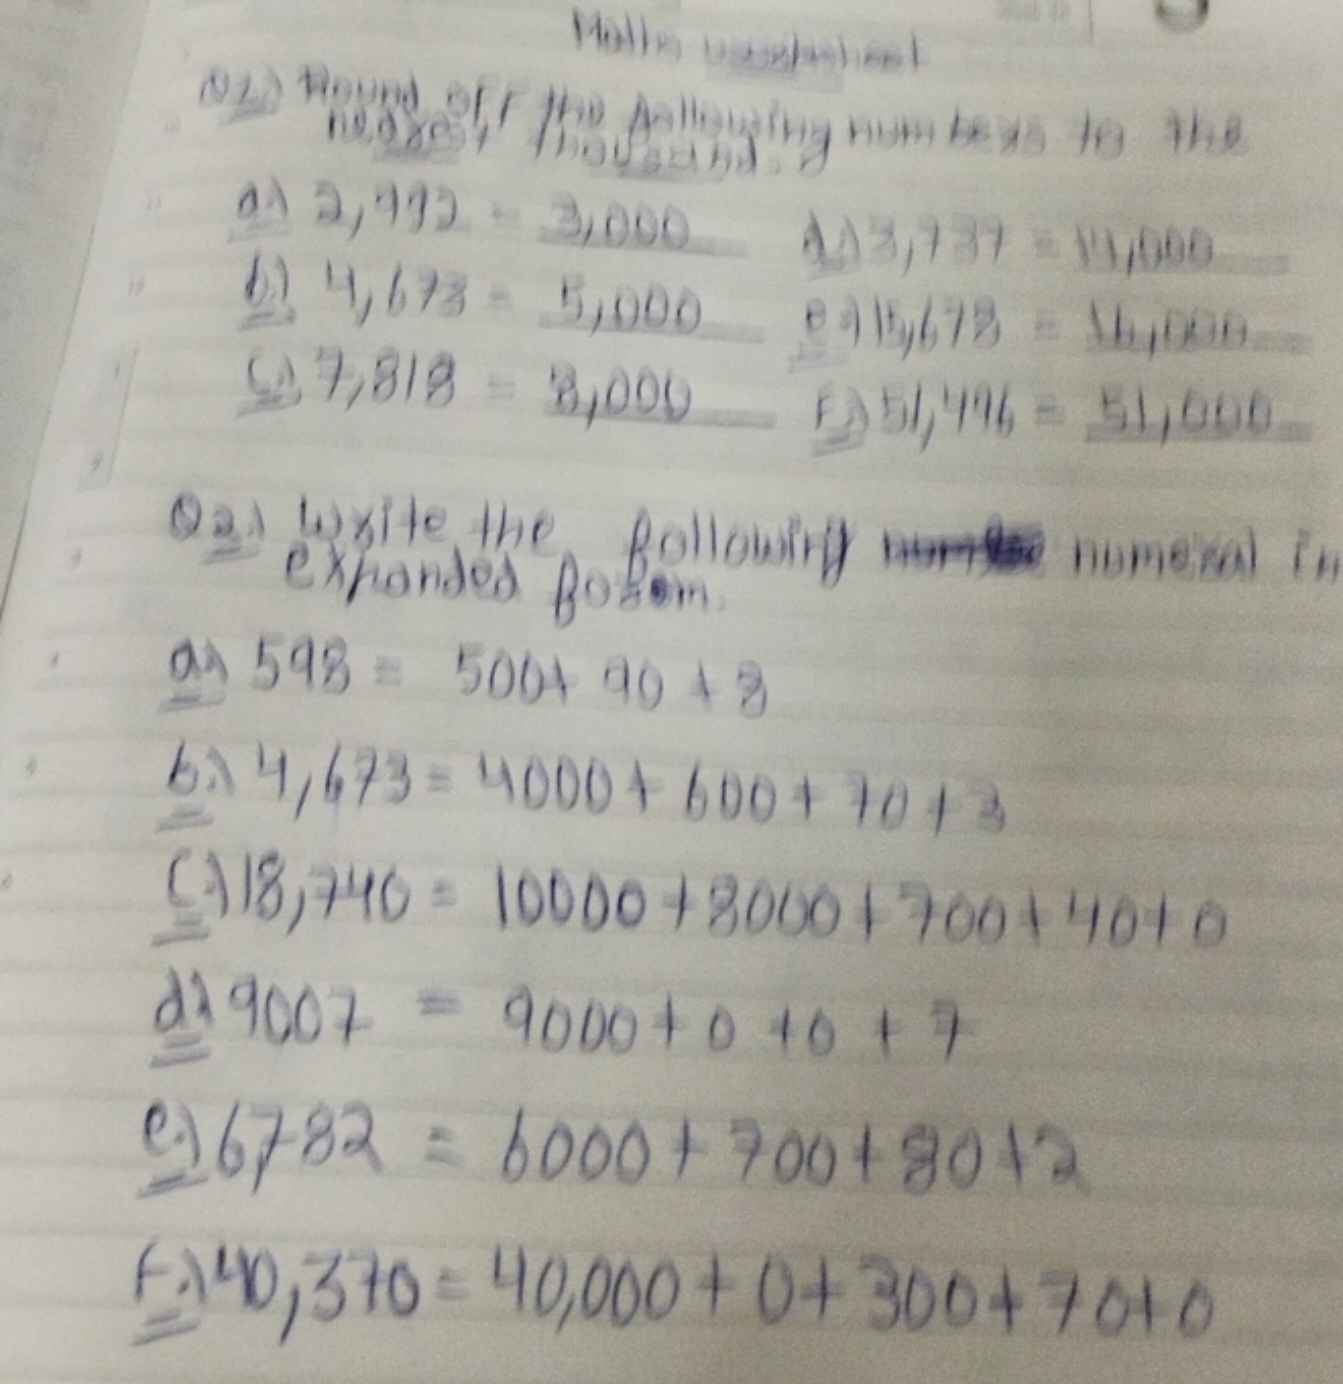 Maths worksheet
Q1.) Round off the following numbers to the
nearest thousand.
a.) 2,992 = 3,000 d.) 13,737 = 14,000
b.) 4,673 = 5,000 e.) 15,678 = 16,000
c.) 7,818 = 8,000 f.) 51,496 = 51,000
Q2.) Write the following numeral in
expanded form.
a.) 598 = 500+ 90 + 8
b.) 4,673 = 4000 + 600 + 70 + 3
c.) 18,740 = 10000 + 8000 + 700 + 40 + 0
d.) 9007 = 9000 + 0 + 0 + 7
e.) 6782 = 6000 + 700 + 80 + 2
f.) 40,370 = 40,000 + 0 + 300 + 70 + 0